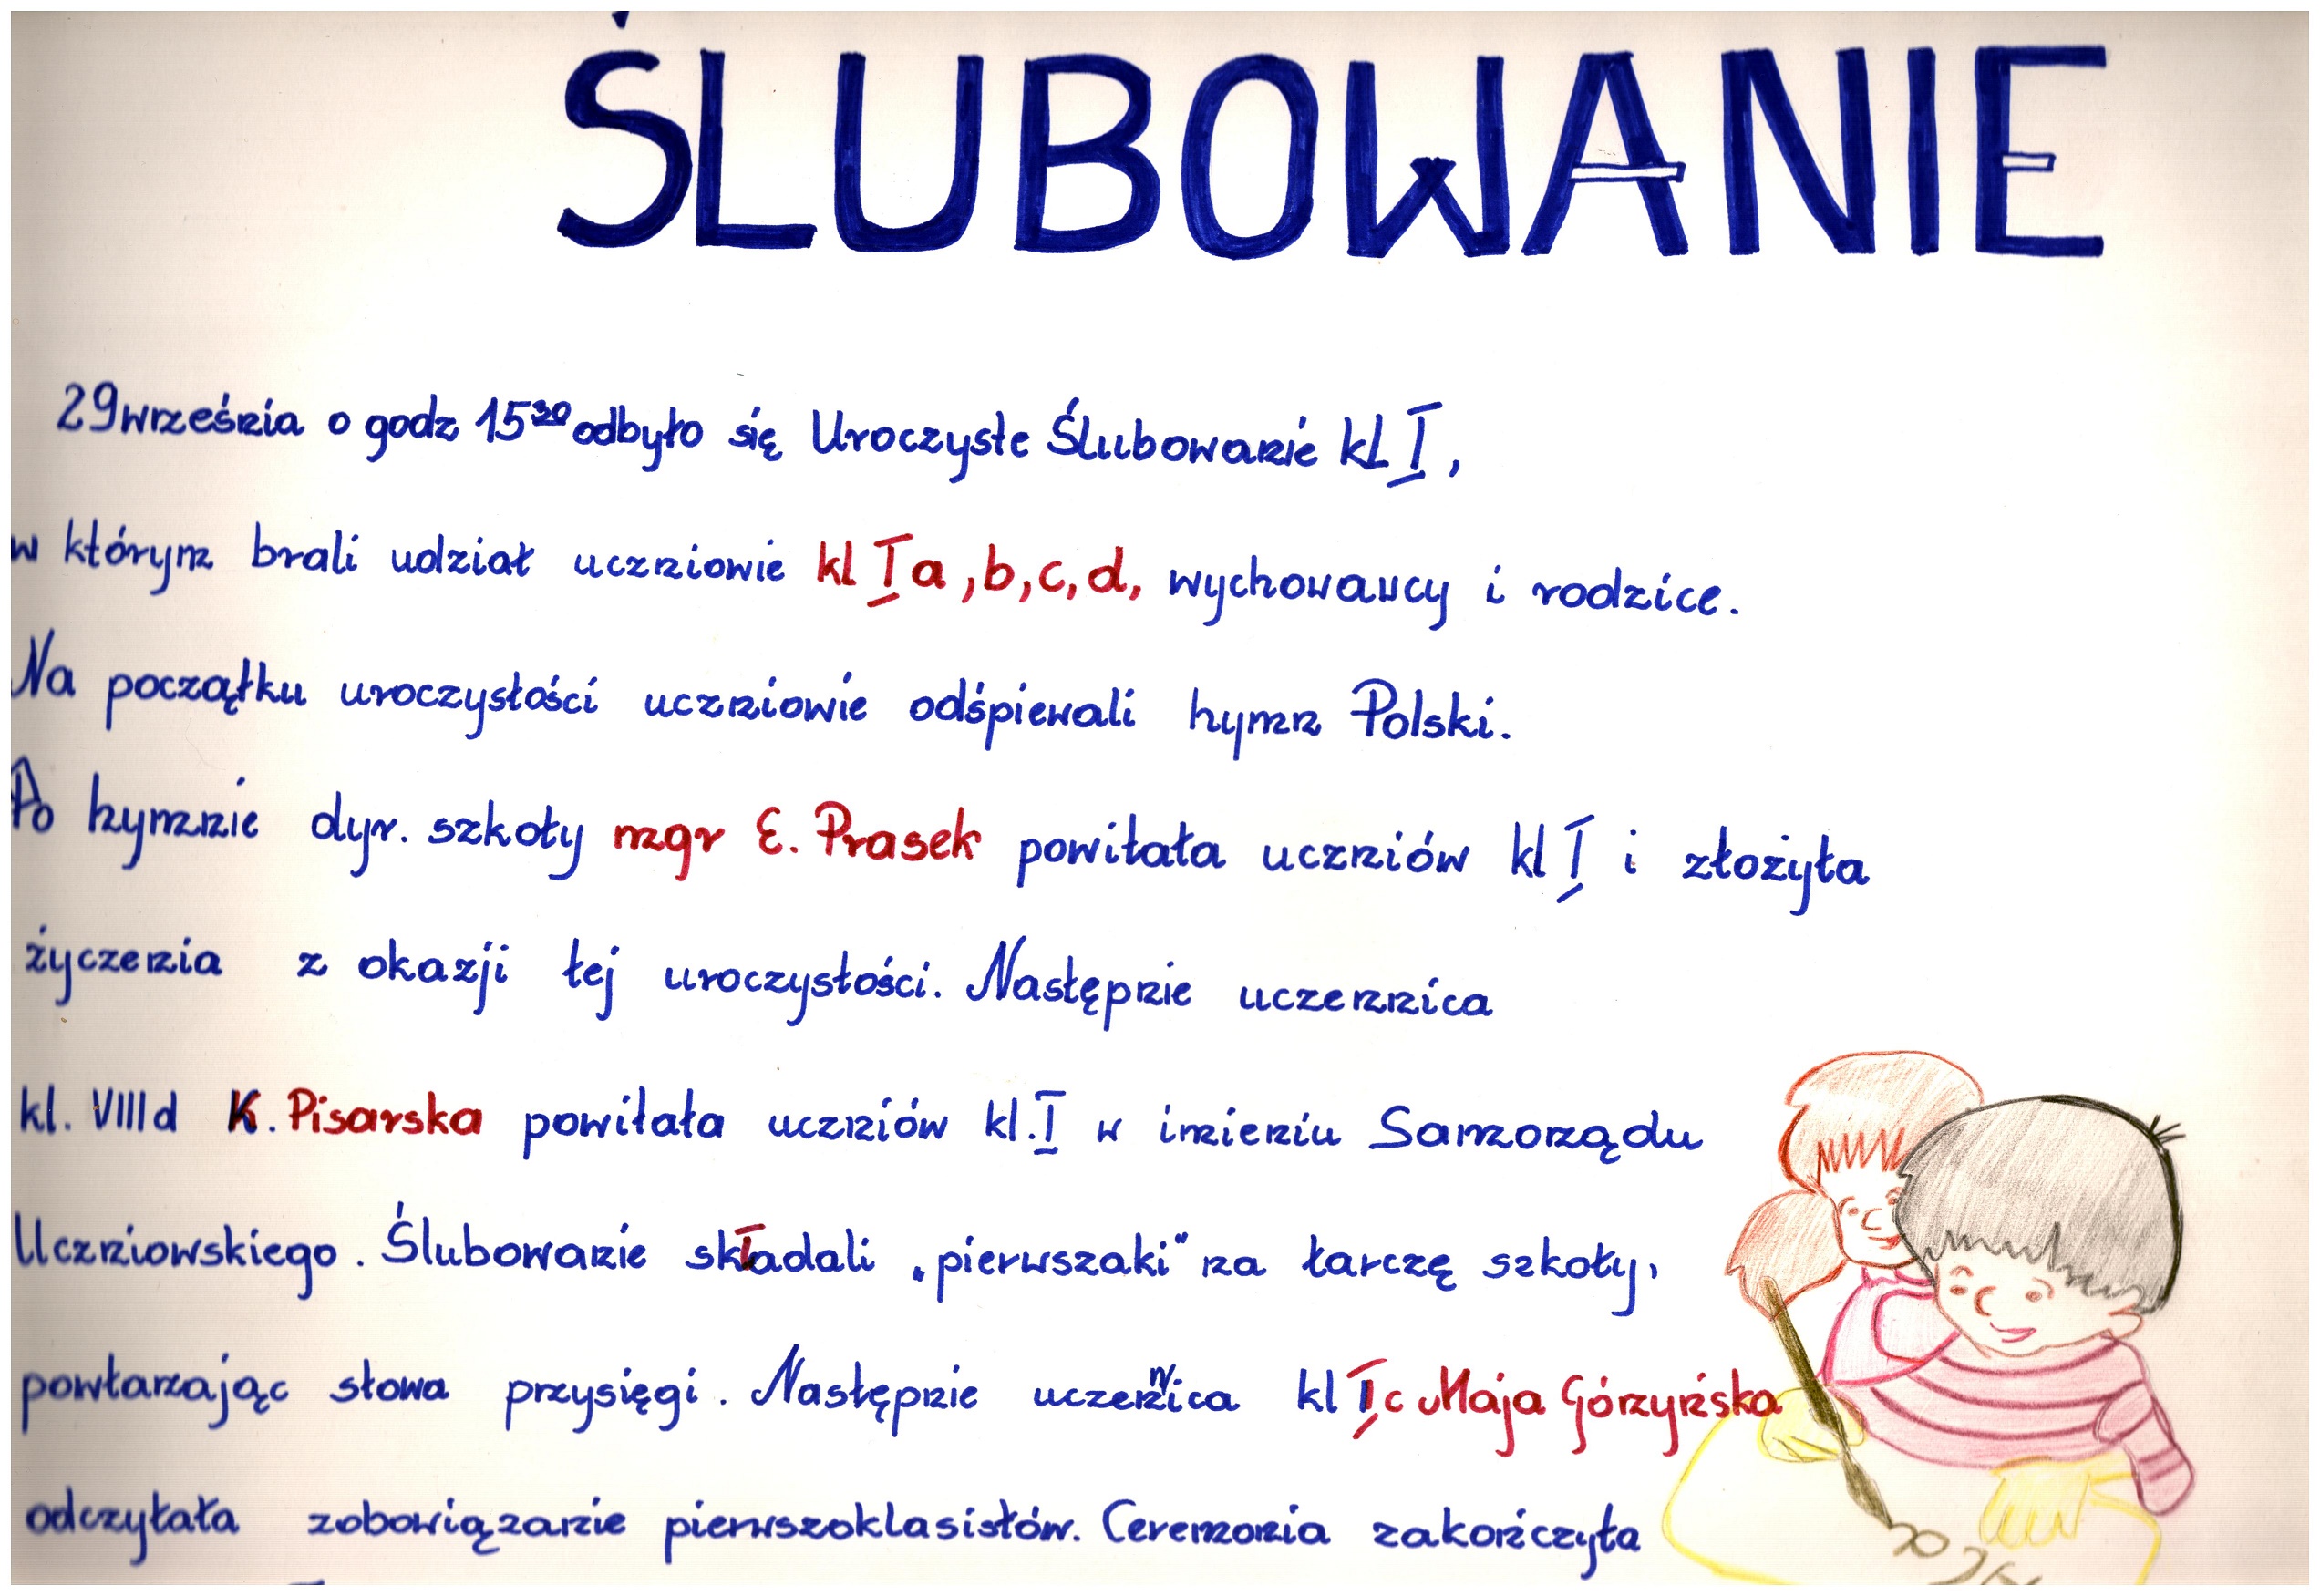 ŚLUBOWANIE
29 września o godz 15³⁰ odbyło się Uroczyste Ślubowanie kl I,
w którym brali udział uczniowie kl I a, b, c, d, wychowawcy i rodzice.
Na początku uroczystości uczniowie odśpiewali hymn Polski.
Po hymnie dyr. szkoły mgr E. Prasek powitała uczniów kl I i złożyła
życzenia z okazji tej uroczystości. Następnie uczennica
kl. VIII d K. Pisarska powitała uczniów kl. I w imieniu Samorządu
Uczniowskiego. Ślubowanie składali „pierwszaki" na tarczę szkoły,
powtarzając słowa przysięgi. Następnie uczennica kl I c Maja Górzyńska
odczytała zobowiązanie pierwszoklasistów. Ceremonia zakończyła